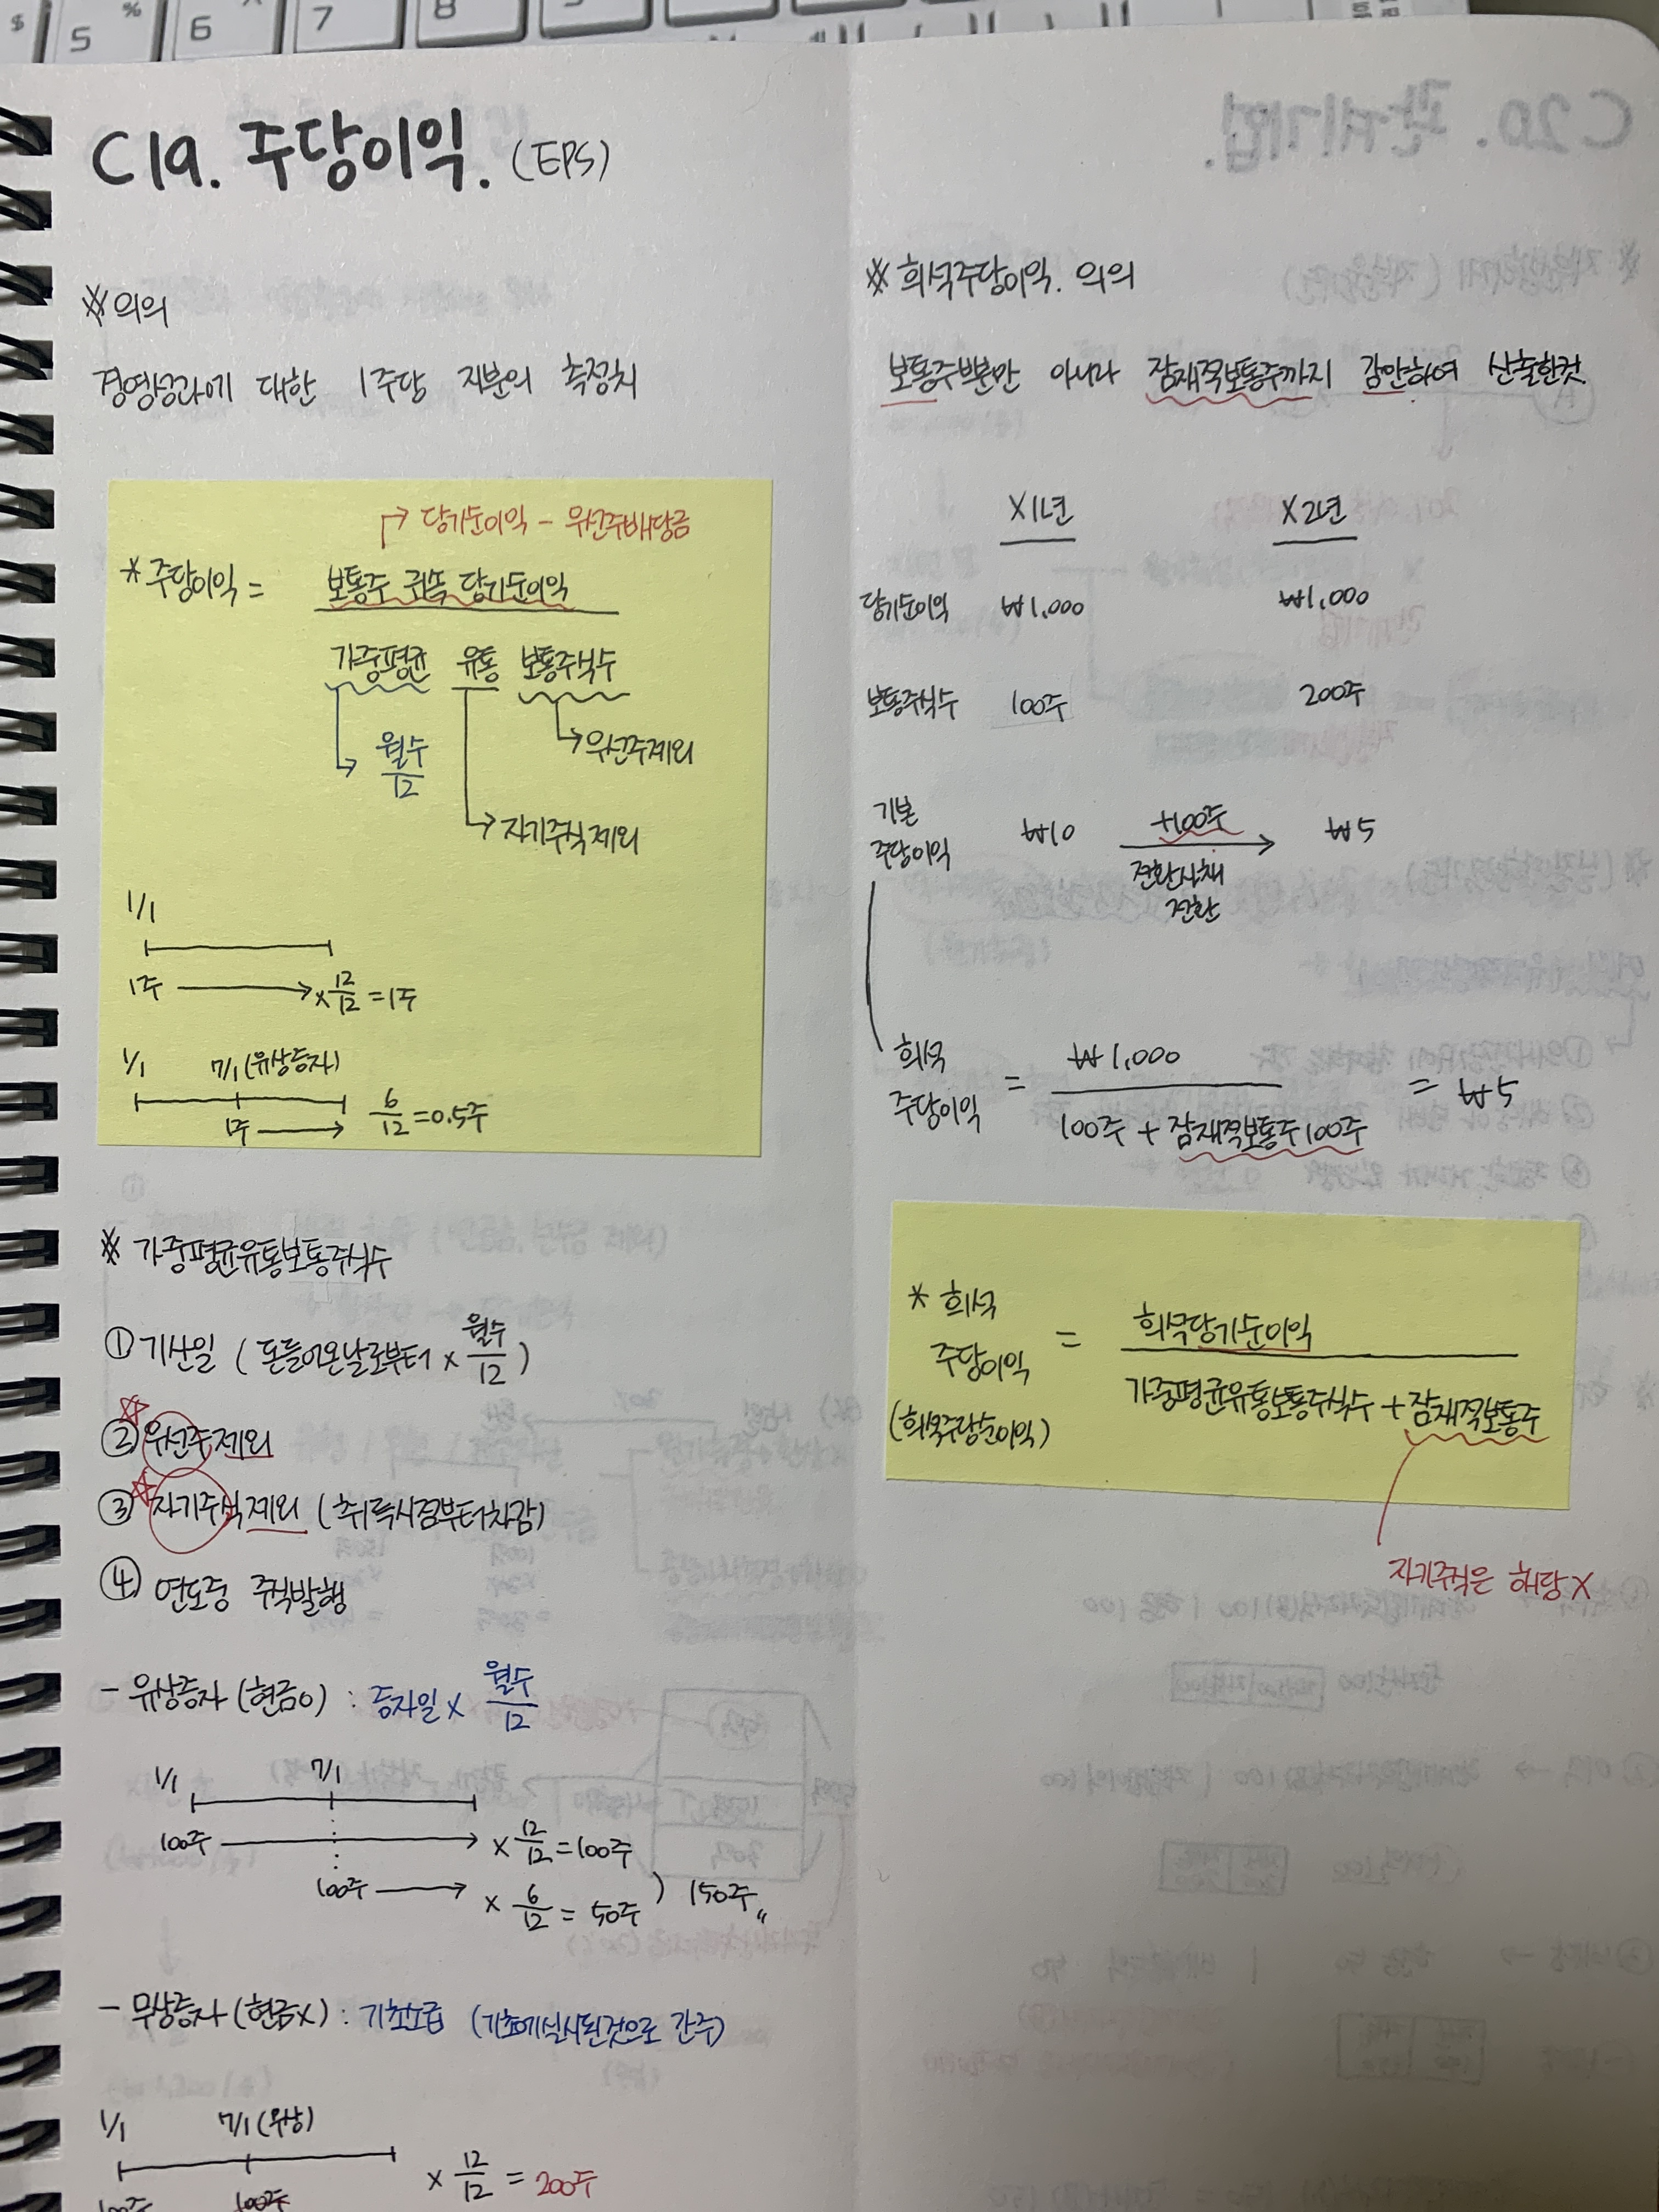 C19. 주당이익. (EPS)
※ 의의
경영성과에 대한 1주당 지분의 측정치
당기순이익 - 우선주배당금
* 주당이익 = 보통주 귀속 당기순이익
가중평균 유통 보통주식수
월수
12
우선주제외
자기주식제외
1/1
1주 × 12/12 = 1주
1/1 7/1 (유상증자)
1주 6/12 = 0.5주
※ 가중평균유통보통주식수
① 기산일 (돈들어온날로부터 × 월수/12)
② 우선주제외
③ 자기주식제외 (취득시점부터차감)
④ 연도중 주식발행
- 유상증자 (현금o) : 증자일 × 월수/12
1/1 7/1
100주 × 12/12 = 100주
100주 × 6/12 = 50주 ) 150주〃
- 무상증자 (현금x) : 기초소급 (기초에실시된것으로 간주)
1/1 7/1 (무상)
100주 100주 × 12/12 = 200주
※ 희석주당이익. 의의
보통주뿐만 아니라 잠재적보통주까지 감안하여 산출한것.
X1년 X2년
당기순이익 ₩1,000 ₩1,000
보통주식수 100주 200주
기본
주당이익 ₩10 +100주 ₩5
전환사채
전환
희석
주당이익 = ₩1,000 = ₩5
100주 + 잠재적보통주100주
* 희석
주당이익 = 희석당기순이익
(희석주당순이익) 가중평균유통보통주식수 + 잠재적보통주
자기주식은 해당 X